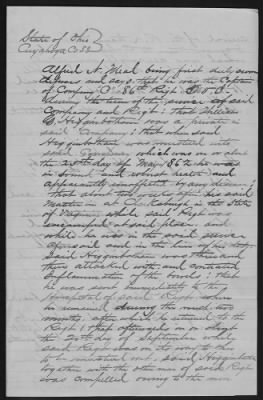 State of Ohio
Cuyahoga Co. SS
Alfred N. Meal being first duly sworn
deposes and says that he was the Captain
of Company "C" 86th Regt O. V. I.
during the term of the service of said
Company and Regt: that William
G. Higginbotham was a private in
said Company: that when said
Higginbotham was mustered into
said Company which was on or about
the 28th day of May 1862 he was
in sound and robust health and
apparently unaffected by any disease:
that about days after his said
Muster in at Clarksburgh in the State
of Virginia while said Regt was
encamped at said place and
while he was in the said service
aforesaid and in the line of his duty
said Higginbotham was then and
there attacked with, and contracted
Inflammation of the bowels: that
he was sent immediately to the
Hospital of said Regt where
he remained during the next two
months, after which he returned to the
Regt: that afterwards on or about
the 20th day of September while
said Regt was on its way to
to be mustered out, said Higginbotham
together with the other men of said Regt
was compelled owing to the